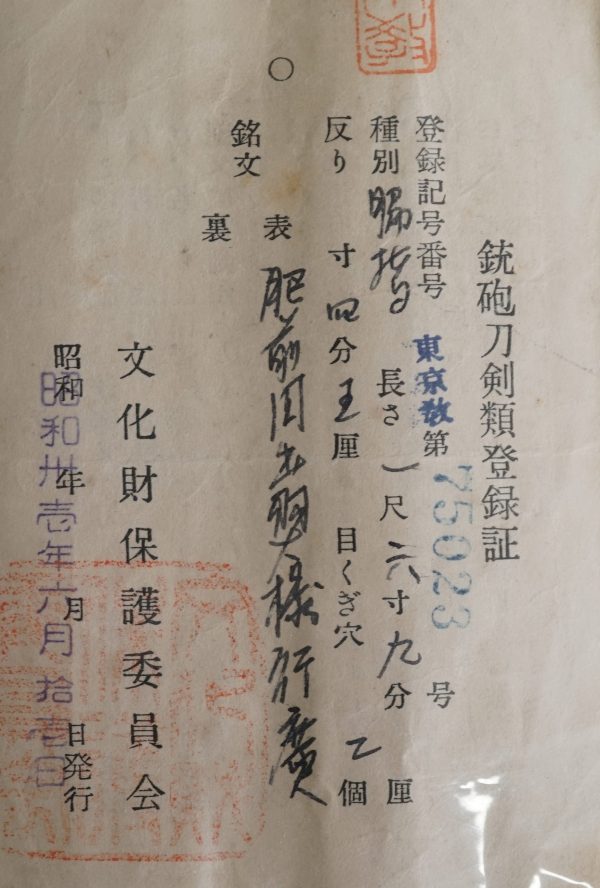 銃砲刀剣類登録証
登録記号番号 東京教第75023号
種別 脇指 長さ 一尺六寸九分 厘
反り 寸四分五厘 目くぎ穴 乙個
銘文 表 肥前国出羽大掾行廣
裏
文化財保護委員会
昭和 年 月 日発行
昭和卅壱年六月拾壱日